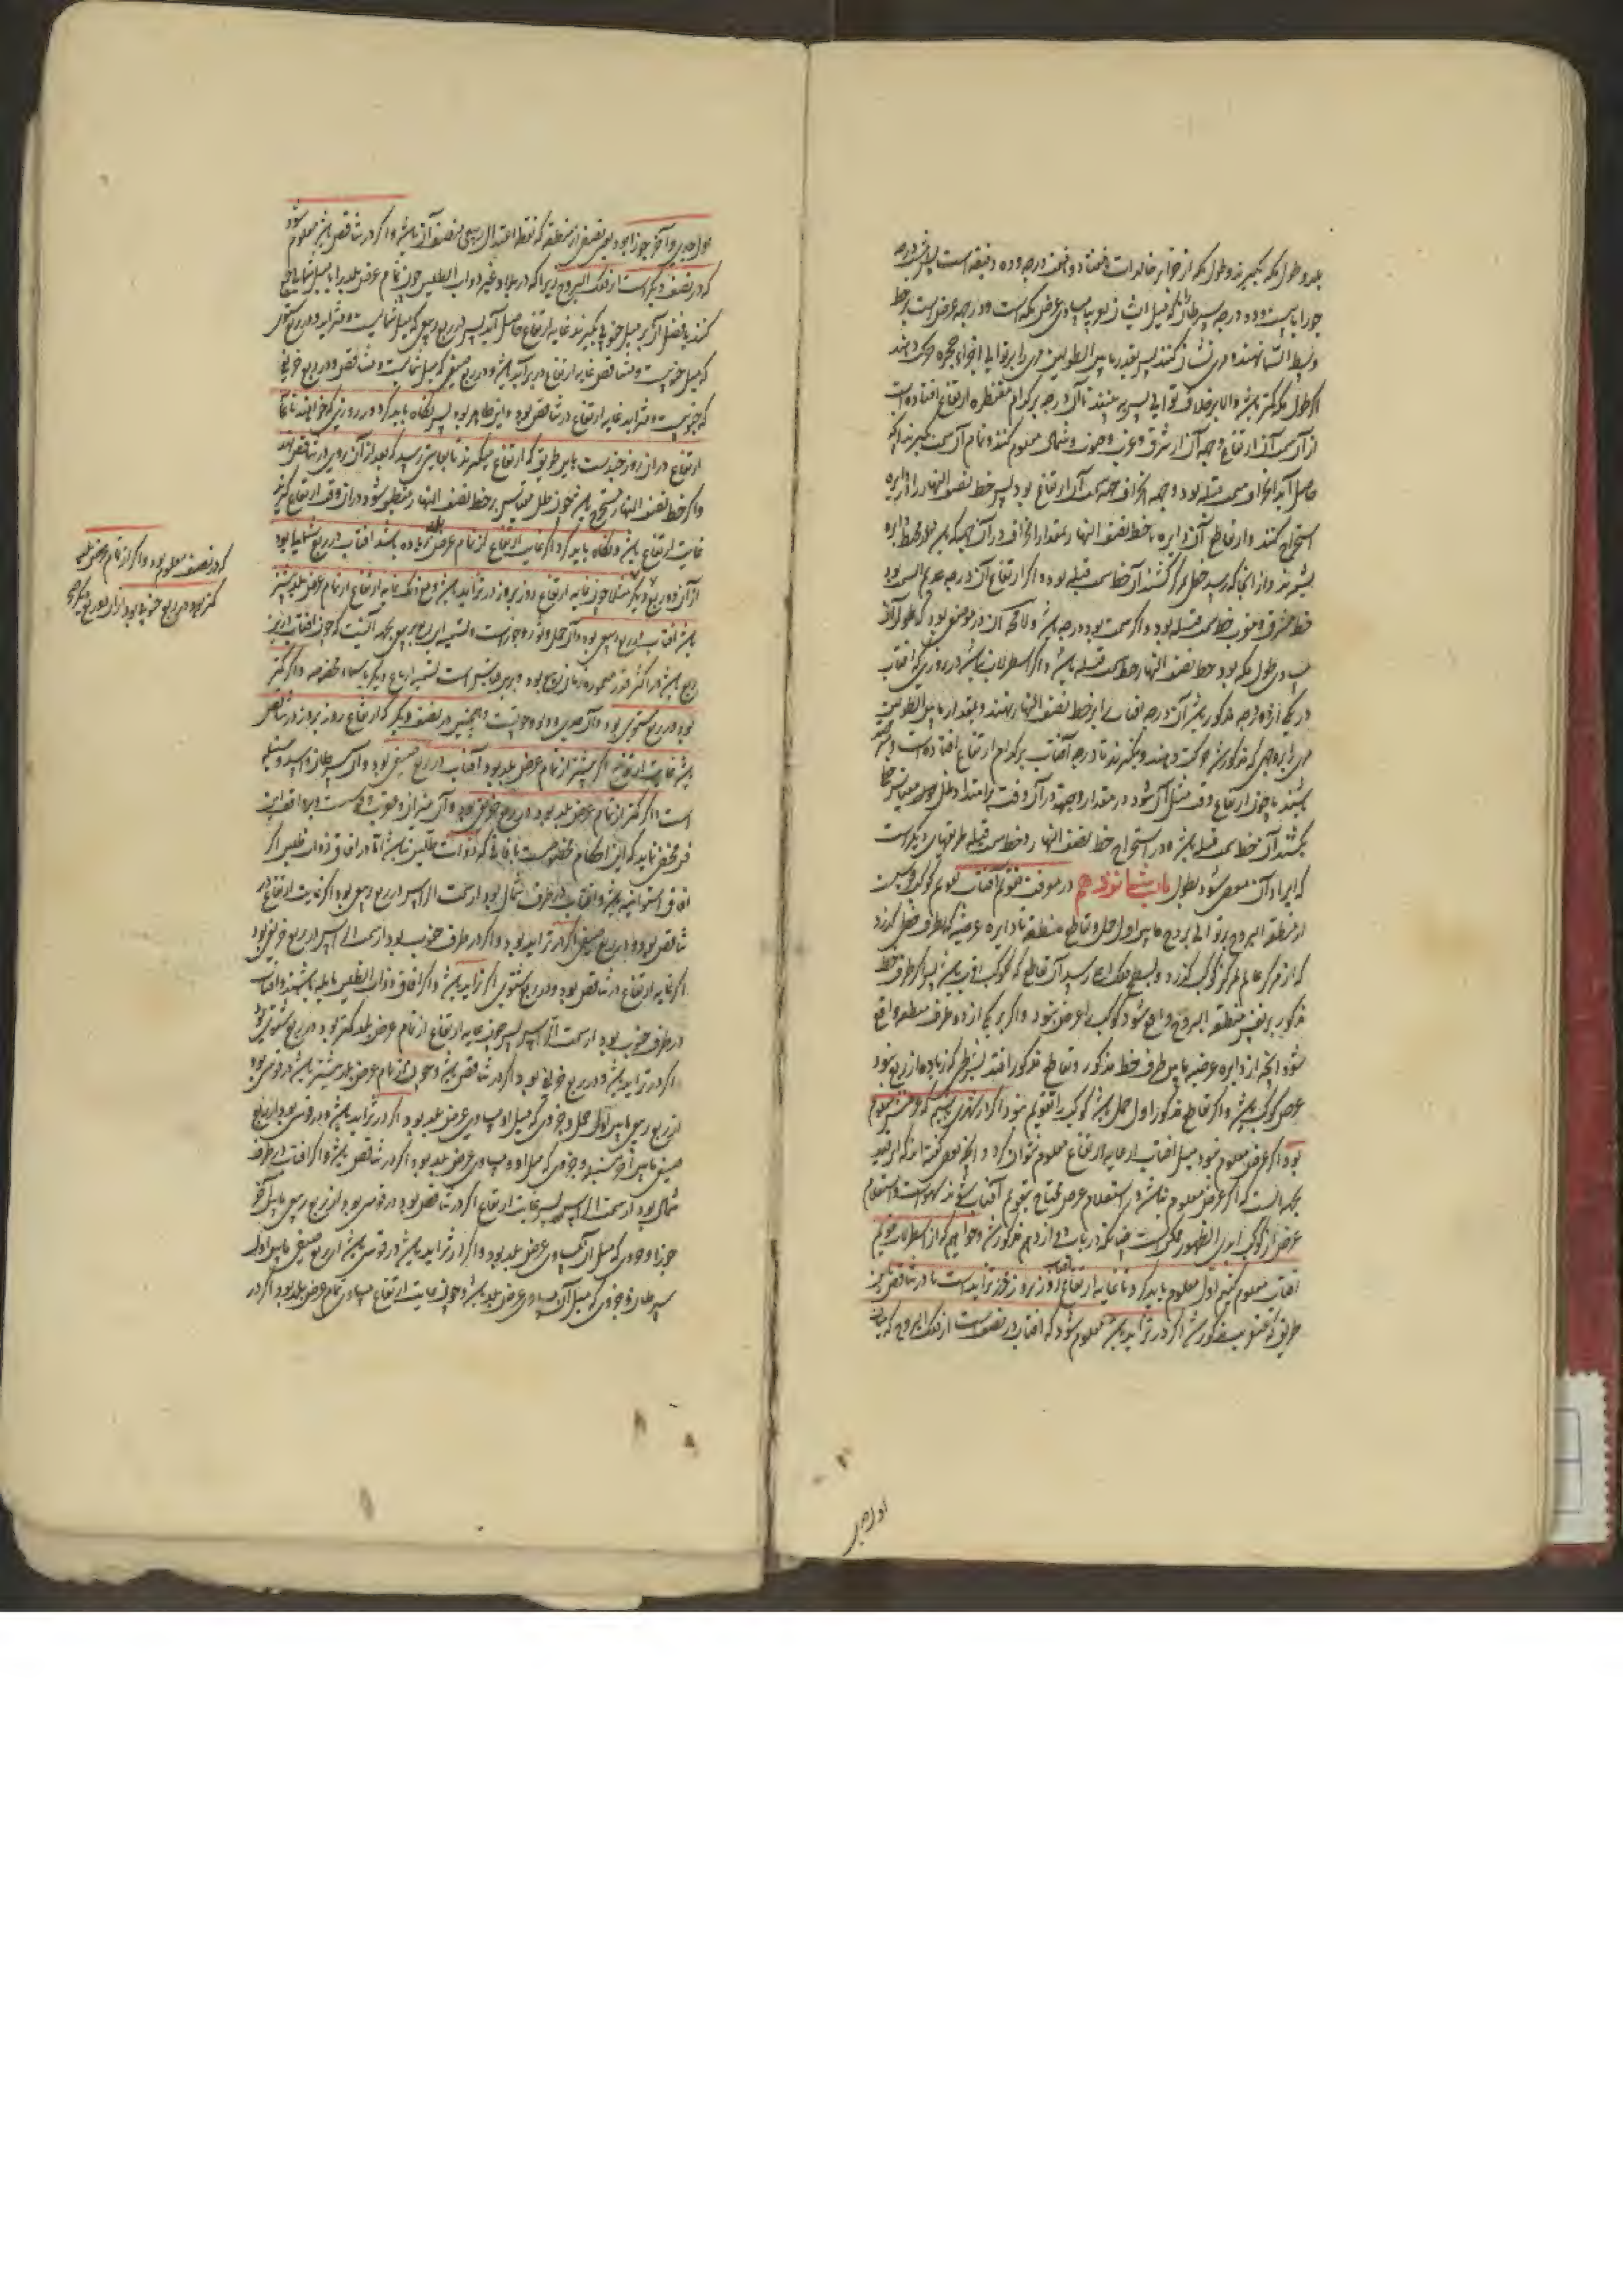 بلد و طول مکه بگیرند و طول مکه از جزایر خالدات هفتاد و هفت درجه و ده دقیقه است پس درجه
جوزا یا بیست و سه درجه سرطان که میل ایشان قریب بمساوی عرض مکه است و درجه عرض است بر خط
وسط السما نهند و مری نشان کنند پس بقدر ما بین الطولین مری را بر توالی اجزاء حجره حرکت دهند
اگر طول مکه کمتر باشد والا بر خلاف توالی پس به بینند تا آن درجه بر کدام مقنطره ارتفاع افتاده است
از آن سمت آن ارتفاع و جهه آن از شرق و غرب و جنوب و شمال معلوم کنند و تمام آن سمت بگیرند آنچه
حاصل آید انحراف سمت قبله بود و جهه انحراف جهه سمت آن ارتفاع بود پس خط نصف النهار را و دایره
استخراج کنند و از تقاطع آن دایره با خط نصف النهار بمقدار انحراف در آن جهه که باشد از محیط دایره
بشمرند و از آنجا که رسد خطی بمرکز کشند آن خط سمت قبله بود و اگر ارتفاع آن درجه عدیم السمت بود
خط مشرق و مغرب خط سمت قبله بود و اگر سمت نود درجه باشد و لا محاله آن در موضعی بود که طول آن
مساوی طول مکه بود خط نصف النهار خط سمت قبله باشد و اگر اسطرلاب نباشد در روزی که آفتاب
در یکی از دو درجه مذکور باشد آن درجه آفتاب را بر خط نصف النهار نهند و بمقدار ما بین الطولین
مری را بوجهی که مذکور شد حرکت دهند و بنگرند تا درجه آفتاب بر کدام ارتفاع افتاده است و منتظر
باشند تا چون ارتفاع وقت مثل آن شود در مقدار و جهه در آن وقت بر امتداد ظل مقیاس خط
بکشند آن خط سمت قبله باشد و در استخراج خط نصف النهار و خط سمت قبله طریقهای دیگر است
که ایراد آن مفضی شود بطول باب شانزدهم در معرفت تقویم آفتاب تقویم کوکب قوسیست
از منطقه البروج بر توالی بروج ما بین اول حمل و تقاطع منطقه با دایره عرضیه که بطرف خطی گذرد
که از مرکز عالم بمرکز کوکب گذرد و بسطح فلک اعلی رسد آن تقاطع که بکوکب اقرب باشد پس اگر طرف خط
مذکور بر نفس منطقه البروج واقع شود کوکب را عرض نبود و اگر بر یکی از دو طرف منطقه واقع
شود آنچه از دایره عرضیه ما بین طرف خط مذکور و تقاطع مذکور افتد بشرطی که زیاده از ربع نبود
عرض کوکب باشد و اگر تقاطع مذکور اول حمل باشد کوکب را تقویم نبود اگر در شهری باشیم که عرضش معلوم
بود و اگر عرض معلوم نبود میل آفتاب از غایه ارتفاع معلوم نتوان کرد و آنچه بعضی گفته اند که این قید
بجهه آنست که اگر عرض معلوم نباشد در استعلام عرض محتاج بتقویم آفتاب شوند سهو است و استعلام
عرض از کوکب ابدی الظهور ممکن است چنانکه در باب دوازدهم مذکور شد و خواهیم که از اسطرلاب تقویم
آفتاب معلوم کنیم اول معلوم باید کرد تا غایه ارتفاع آفتاب روز بروز در تزاید است یا در تناقص بر
طریق که عنقریب مذکور شد اگر در تزاید باشد معلوم شود که آفتاب در نصفیست از فلک البروج که میان
اول جدی
اول جدی و آخر جوزا بود یعنی نصفی از منطقه که نقطه اعتدال ربیعی منتصف آن باشد و اگر در تناقص باشد معلوم شود
که در نصف دیگر است از فلک البروج زیرا که در بلاد غیر ذوات الظلین چون تمام عرض بلد را با میل شمالی جمع
کنند یا فضل آن بر میل جنوبی بگیرند غایه ارتفاع حاصل آید پس در ربع ربیعی که میل شمالیست و متزاید و در ربع شتوی
که میل جنوبیست و متناقص غایه ارتفاع در تزاید باشد و در ربع صیفی که میل شمالیست و متناقص و در ربع خریفی
که جنوبیست و متزاید غایه ارتفاع در تناقص بود و این ظاهر بود پس نگاه باید کرد در روزی که خواهند تا غایه
ارتفاع در آن روز چندست باین طریق که ارتفاع میگیرند تا بغایتی رسد که بعد از آن روی در تناقص نهد
و اگر خط نصف النهار مستخرج باشد چون ظل مقیاس بر خط نصف النهار منطبق شود در آن وقت ارتفاع گیرند
غایت ارتفاع باشد و نگاه باید کرد اگر غایت ارتفاع از تمام عرض بلد زیاده باشد آفتاب در ربع شمالی بود
از آن دو ربع دیگر مثلا چون غایه ارتفاع روز بروز در تزاید باشد و غایه ارتفاع از تمام عرض بلد بیشتر
باشد آفتاب در ربع ربیعی بود و آن حمل و ثور و جوزاست و تسمیه این ربع بربیعی بجهه آنست که چون آفتاب درین
ربع باشد در اکثر قدر معموره زمان ربیع بود و برین قیاس است تسمیه ارباع دیگر باسماء مخصوصه و اگر کمتر
بود در ربع شتوی بود و آن جدی و دلو و حوتست و همچنین در نصف دیگر که ارتفاع روز بروز در تناقص
باشد غایت ارتفاع اگر بیشتر از تمام عرض بلد بود آفتاب در ربع صیفی بود و آن سرطان و اسد و سنبله
است و اگر کمتر از تمام عرض بلد بود در ربع خریفی بود و آن میزان و عقرب و قوس است و بر واقف این
فن مخفی نماند که این احکام مخصوص است بآفاقی که ذوات ظلین نباشد اما در آفاق ذوات ظلین اگر
آفاق استوائیه باشد و آفتاب در طرف شمال بود از سمت الراس در ربع ربیعی بود اگر غایت ارتفاع در
تناقص بود و در ربع صیفی اگر در تزاید بود و اگر در طرف جنوب بود از سمت الراس در ربع خریفی بود
اگر غایه ارتفاع در تناقص بود و در ربع شتوی اگر در تزاید باشد و اگر آفاق ذوات الظلین مایله باشند و آفتاب
در طرف جنوب بود از سمت الراس پس چون غایه ارتفاع از تمام عرض بلد کمتر بود در ربع شتوی بود
اگر در تزاید باشد و در ربع خریفی بود اگر در تناقص باشد و چون از تمام عرض بلد بیشتر باشد در قوسی بود
از ربع ربیعی ما بین اول حمل و جزوی که میل او مساوی عرض بلد بود اگر در تزاید باشد و در قوسی بود از ربع
صیفی ما بین آخر سنبله و جزوی که میل او مساوی عرض بلد بود اگر در تناقص باشد و اگر آفتاب در طرف
شمال بود از سمت الراس پس غایت ارتفاع اگر در تناقص بود در قوسی بود از ربع ربیعی ما بین آخر
جوزا و جزوی که میل آن مساوی عرض بلد بود و اگر در تزاید باشد در قوسی باشد از ربع صیفی ما بین اول
سرطان و جزوی که میل آن مساوی عرض بلد باشد و چون غایت ارتفاع مساوی تمام عرض بلد بود اگر در
که در نصف معلوم بود و اگر از تمام عرض بلد
کمتر بود در ربع جنوبی بود از آن دو ربع دیگر